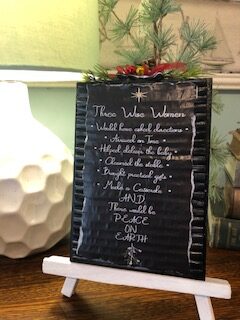 Three Wise Women
Would have asked directions •
• Arrived on Time •
• Helped deliver the baby •
• Cleaned the stable •
• Brought practical gifts •
• Made a Casserole •
AND
There would be
PEACE
ON
EARTH